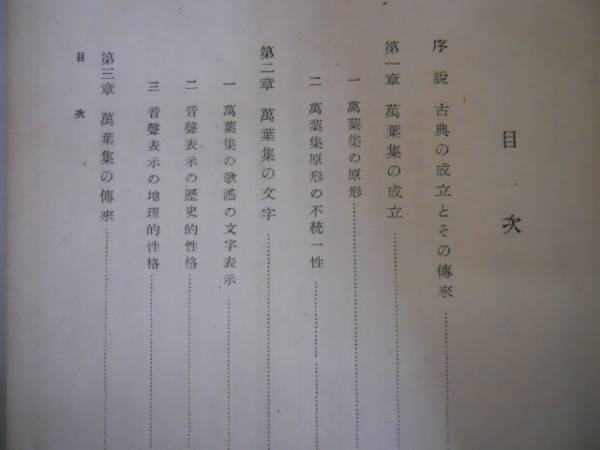 目次
序説 古典の成立とその傳來
第一章 萬葉集の成立
一 萬葉集の原形
二 萬葉集原形の不統一性
第二章 萬葉集の文字
一 萬葉集の歌謠の文字表示
二 音聲表示の歷史的性格
三 音聲表示の地理的性格
第三章 萬葉集の傳來
目次